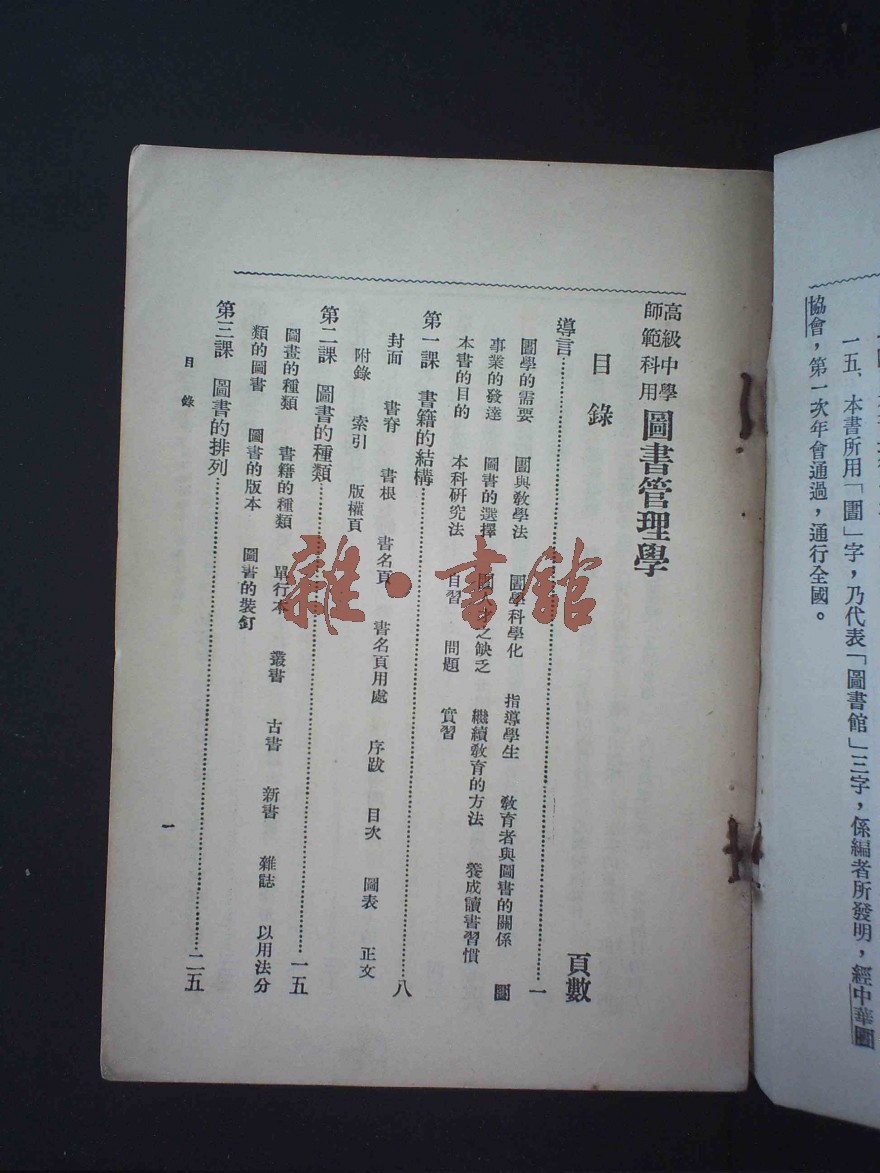 一五、本書所用「圕」字，乃代表「圖書館」三字，係編者所發明，經中華圕
協會，第一次年會通過，通行全國。
高級中學
師範科用
圖書管理學
目錄
頁數
導言……一
圕學的需要 圕與敎學法 圕學科學化 指導學生 敎育者與圖書的關係 圕
事業的發達 圖書的選擇 圕人才之缺乏 繼續敎育的方法 養成讀書習慣
本書的目的 本科研究法 自習 問題 實習
第一課 書籍的結構……八
封面 書脊 書根 書名頁 書名頁用處 序跋 目次 圖表 正文
附錄 索引 版權頁
第二課 圖書的種類……一五
圖書的種類 書籍的種類 單行本 叢書 古書 新書 雜誌 以用法分
類的圖書 圖書的版本 圖書的裝釘
第三課 圖書的排列……二五
目錄
一
雜·書館